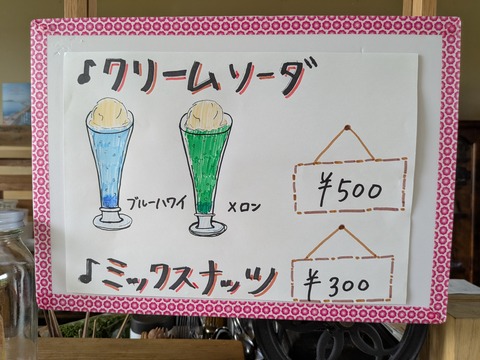 ♪クリームソーダ
ブルーハワイ
メロン
¥500
♪ミックスナッツ
¥300